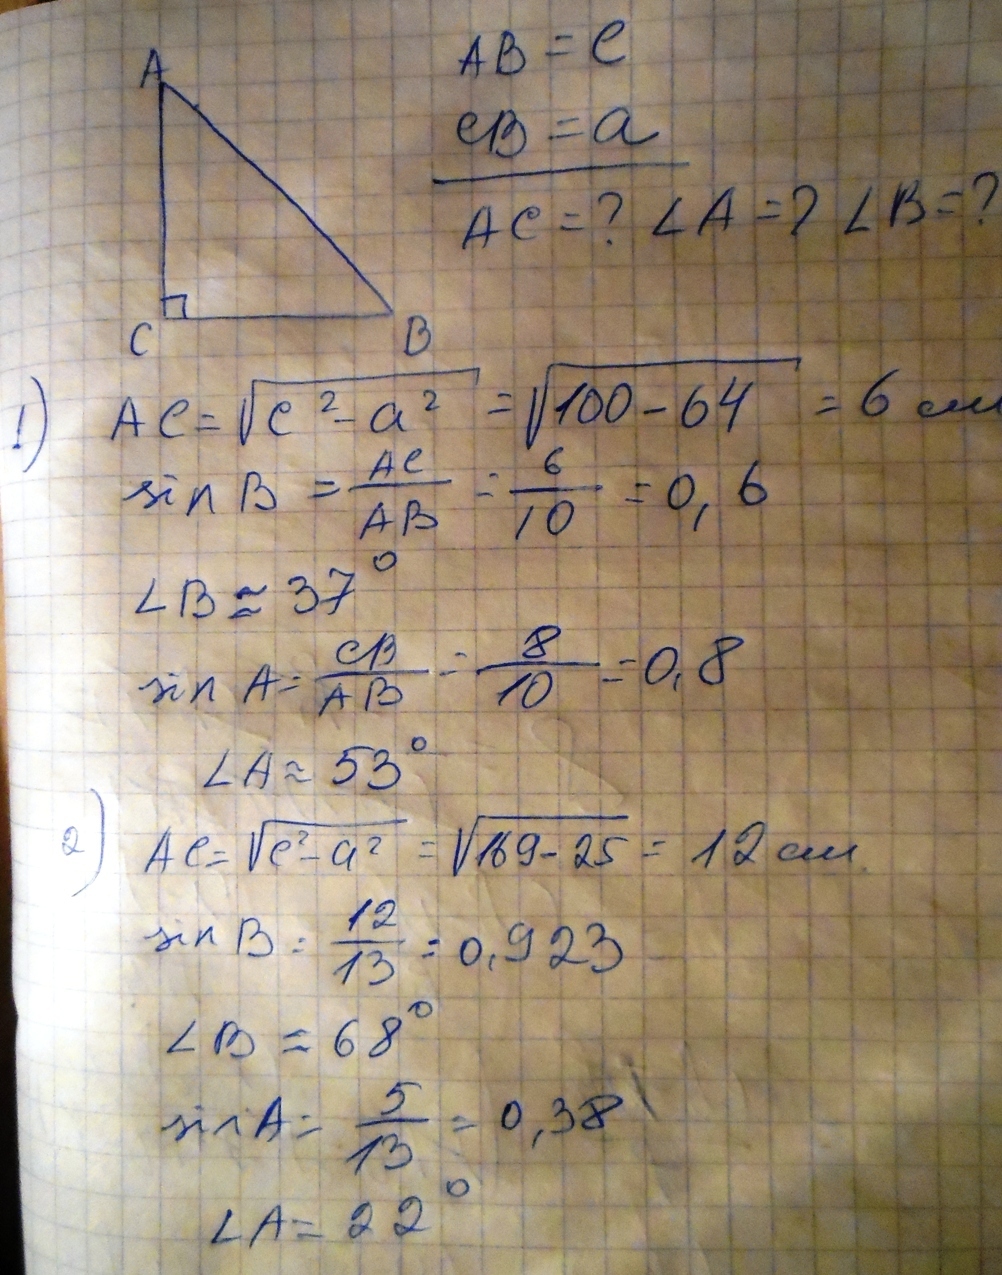 A
AB = c
CB = a
AC = ? ∠A = ? ∠B = ?
C B
1) AC = √c² - a² = √100 - 64 = 6 см
sin B = AC/AB = 6/10 = 0,6
∠B ≈ 37°
sin A = CB/AB = 8/10 = 0,8
∠A ≈ 53°
2) AC = √c² - a² = √169 - 25 = 12 см.
sin B = 12/13 = 0,923
∠B ≈ 68°
sin A = 5/13 = 0,38
∠A = 22°